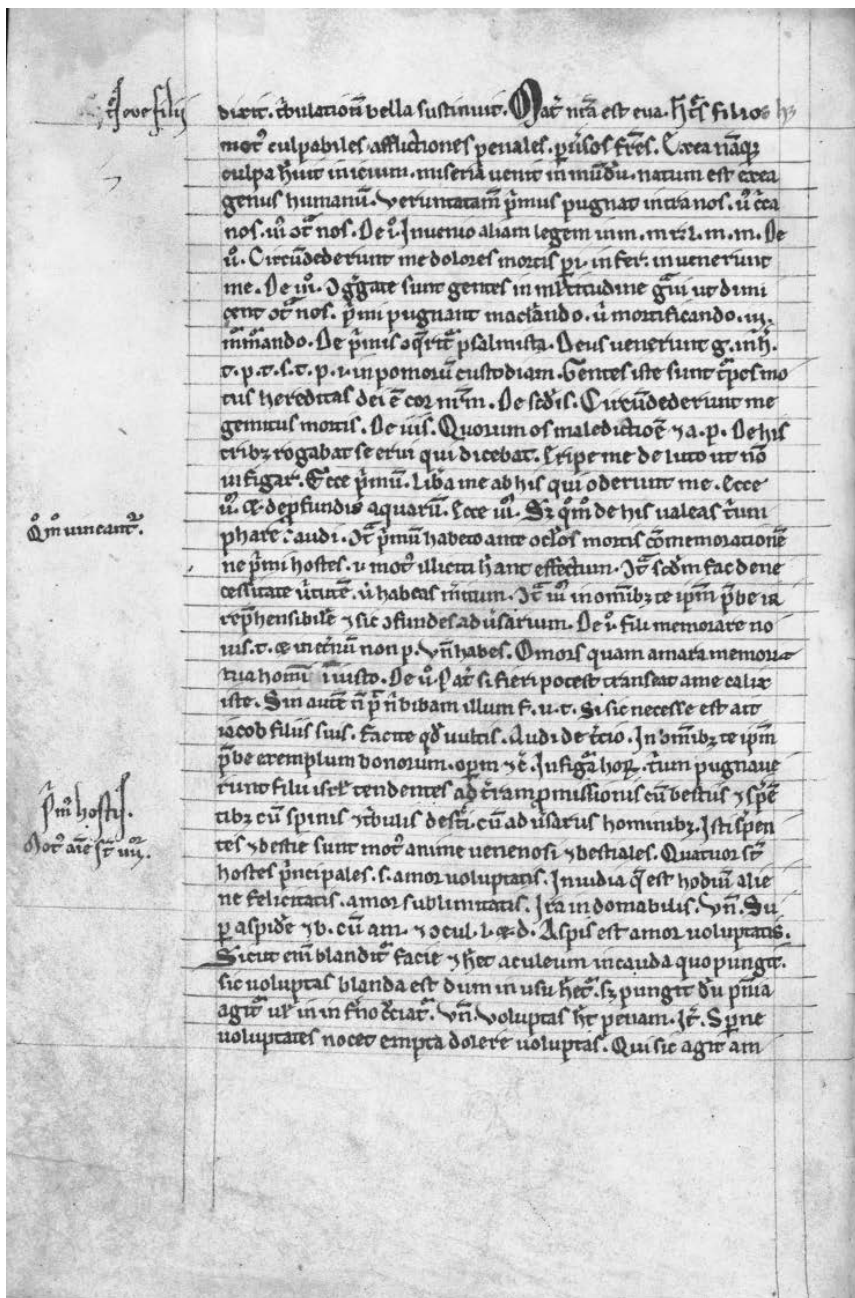 t͛ eve filii
dixit. t͛bulationū bella sustinuit. Mat͛ nr̄a est eva. h̄ t͛s filios hꝫ
mot᷒ culpabiles. afflictiones penales. p͛uisos fr̄es. Ex ea nāqꝫ
culpa h̄uit inicium. miseria venit in mūdū. natum est ex ea
genus humanū. Veruntatam̄ p͛mus pugnat intra nos. ii᷒ c͛ca
nos. iii᷒ ↄt͛ nos. De i᷒. Invenio aliam legem in m. m r̄. l. m. m. De
ii᷒. Circūdederunt me dolores mortis p͛i. infer. invenerunt
me. De iii᷒. Ig͛gate sunt gentes in m̄ltitudine g͛ui ut dimi
cent ↄt͛ nos. p͛mi pugnant maclando. ii͛ mortificando. iii.
De p͛mis ↄq͛rit᷒ psalmista. Deus venerunt g. in h̄.
t. p. t. s. t. p. i. in pomorū custodiam. Gentes iste sunt t͛pes mo
tus hereditas dei ē cor nr̄m. De sc̄dis. Circūdederunt me
gemitus mortis. De iiis. Quorum os maledictiōe ⁊ a. p. De his
tribꝫ rogabat se erui qui dicebat. Eripe me de luto ut nō
infigar. Ecce p͛mū. Lib͛a me ab his qui oderunt me. Ecce
ii᷒. ⁊ de p̄fundis aquarū. Ecce iii᷒. Sꝫ q᷒m̄ de his valeas t͛ium
Q᷒m̄ vincant᷒.
phare. audi. It͛ p͛mū habeto ante oc̄los mortis c̄memorationē
ne p͛mi hostes. i. mot᷒ illiciti h̄ant effectum. It͛ scd̄m fac de ne
cessitate v͛tutē. ii͛ habeas m͛itum. It͛ iii᷒ in om̄ibꝫ te ip̄m p̄be ir
rep̄hensibilē ⁊ sic ↄfundes adūsarium. De i᷒. fili memorare no
vis. t. ⁊ in et͛nū non p. Vn̄ habes. O mors quam amara memori
tua homī īiusto. De ii᷒. Pat͛ si fieri potest transeat a me calix
iste. Sin autē n̄ p͛ n̄ bibam illum f. v. t. Si sic necesse est ait
iacob filiis suis. facite qd̄ vultis. Audi de t͛cio. In ōmibꝫ te ip̄m
p̄be exemplum bonorum. opum ⁊c̄. In figura horꝫ. t͛ium pugnave
runt filii isr̄l tendentes ad t͛ram p̄missionis cū bestiis ⁊ sp̄ē
P͛mi hostes.
tibꝫ cū spinis ⁊ t͛bulis des̄ti. cū adūsariis hominibꝫ. Isti sp̄en
Mot᷒ aīe st̄ iiii᷒.
tes ⁊ bestie sunt mot᷒ anime venenosi ⁊ bestiales. Quatuor st̄
hostes p͛ncipales. s. amor voluptatis. Invidia q̄ est hodiū alie
ne felicitatis. amor sublimitatis. Ira indomabilis. Vn̄. Su
p aspidē ⁊ b. cū am. ⁊ ↄcul. l. ⁊ d. Aspis est amor voluptatis.
Sicut eni᷒ blandit᷒ facie ⁊ h̄et aculeum in cauda quo pungit.
sic voluptas blanda est dum in usu h̄et᷒. sꝫ pungit dū pn̄ia
agit᷒ vl̄ in inf͛no c͛ciat᷒. Vn̄. Voluptas h̄t penam. It͛. Sperne
voluptates nocet empta dolore voluptas. Qui sic agit am